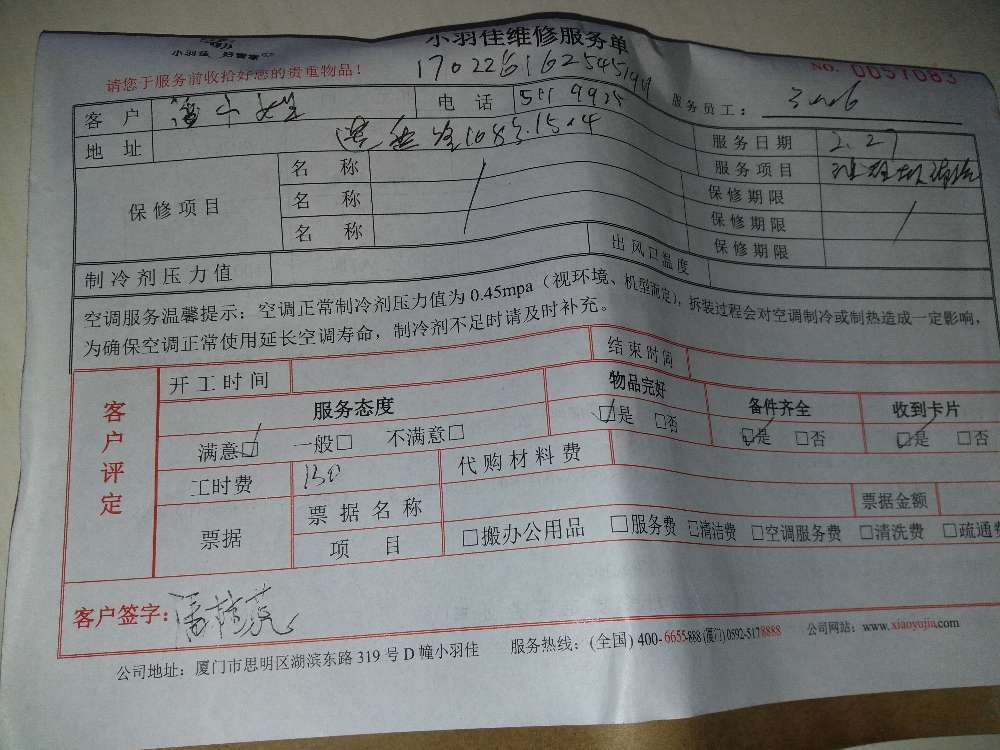 小羽佳 好管家
小羽佳维修服务单
请您于服务前收拾好您的贵重物品！
NO. 0057083
服务员工：
客户
电话
地址 108号1504
服务日期 2.27
保修项目 名称
服务项目
名称 保修期限
名称 保修期限
保修期限
制冷剂压力值 出风口温度
空调服务温馨提示：空调正常制冷剂压力值为0.45mpa（视环境、机型而定），拆装过程会对空调制冷或制热造成一定影响，
为确保空调正常使用延长空调寿命，制冷剂不足时请及时补充。
客户评定
开工时间 结束时间
服务态度 物品完好 备件齐全 收到卡片
满意□ 一般□ 不满意□ □是 □否 □是 □否 □是 □否
工时费 150 代购材料费
票据 票据名称 票据金额
项目 □搬办公用品 □服务费 □清洁费 □空调服务费 □清洗费 □疏通费
客户签字：
公司地址：厦门市思明区湖滨东路319号D幢小羽佳 服务热线：(全国) 400-6655-888 (厦门) 0592-5178888 公司网站：www.xiaoyujia.com